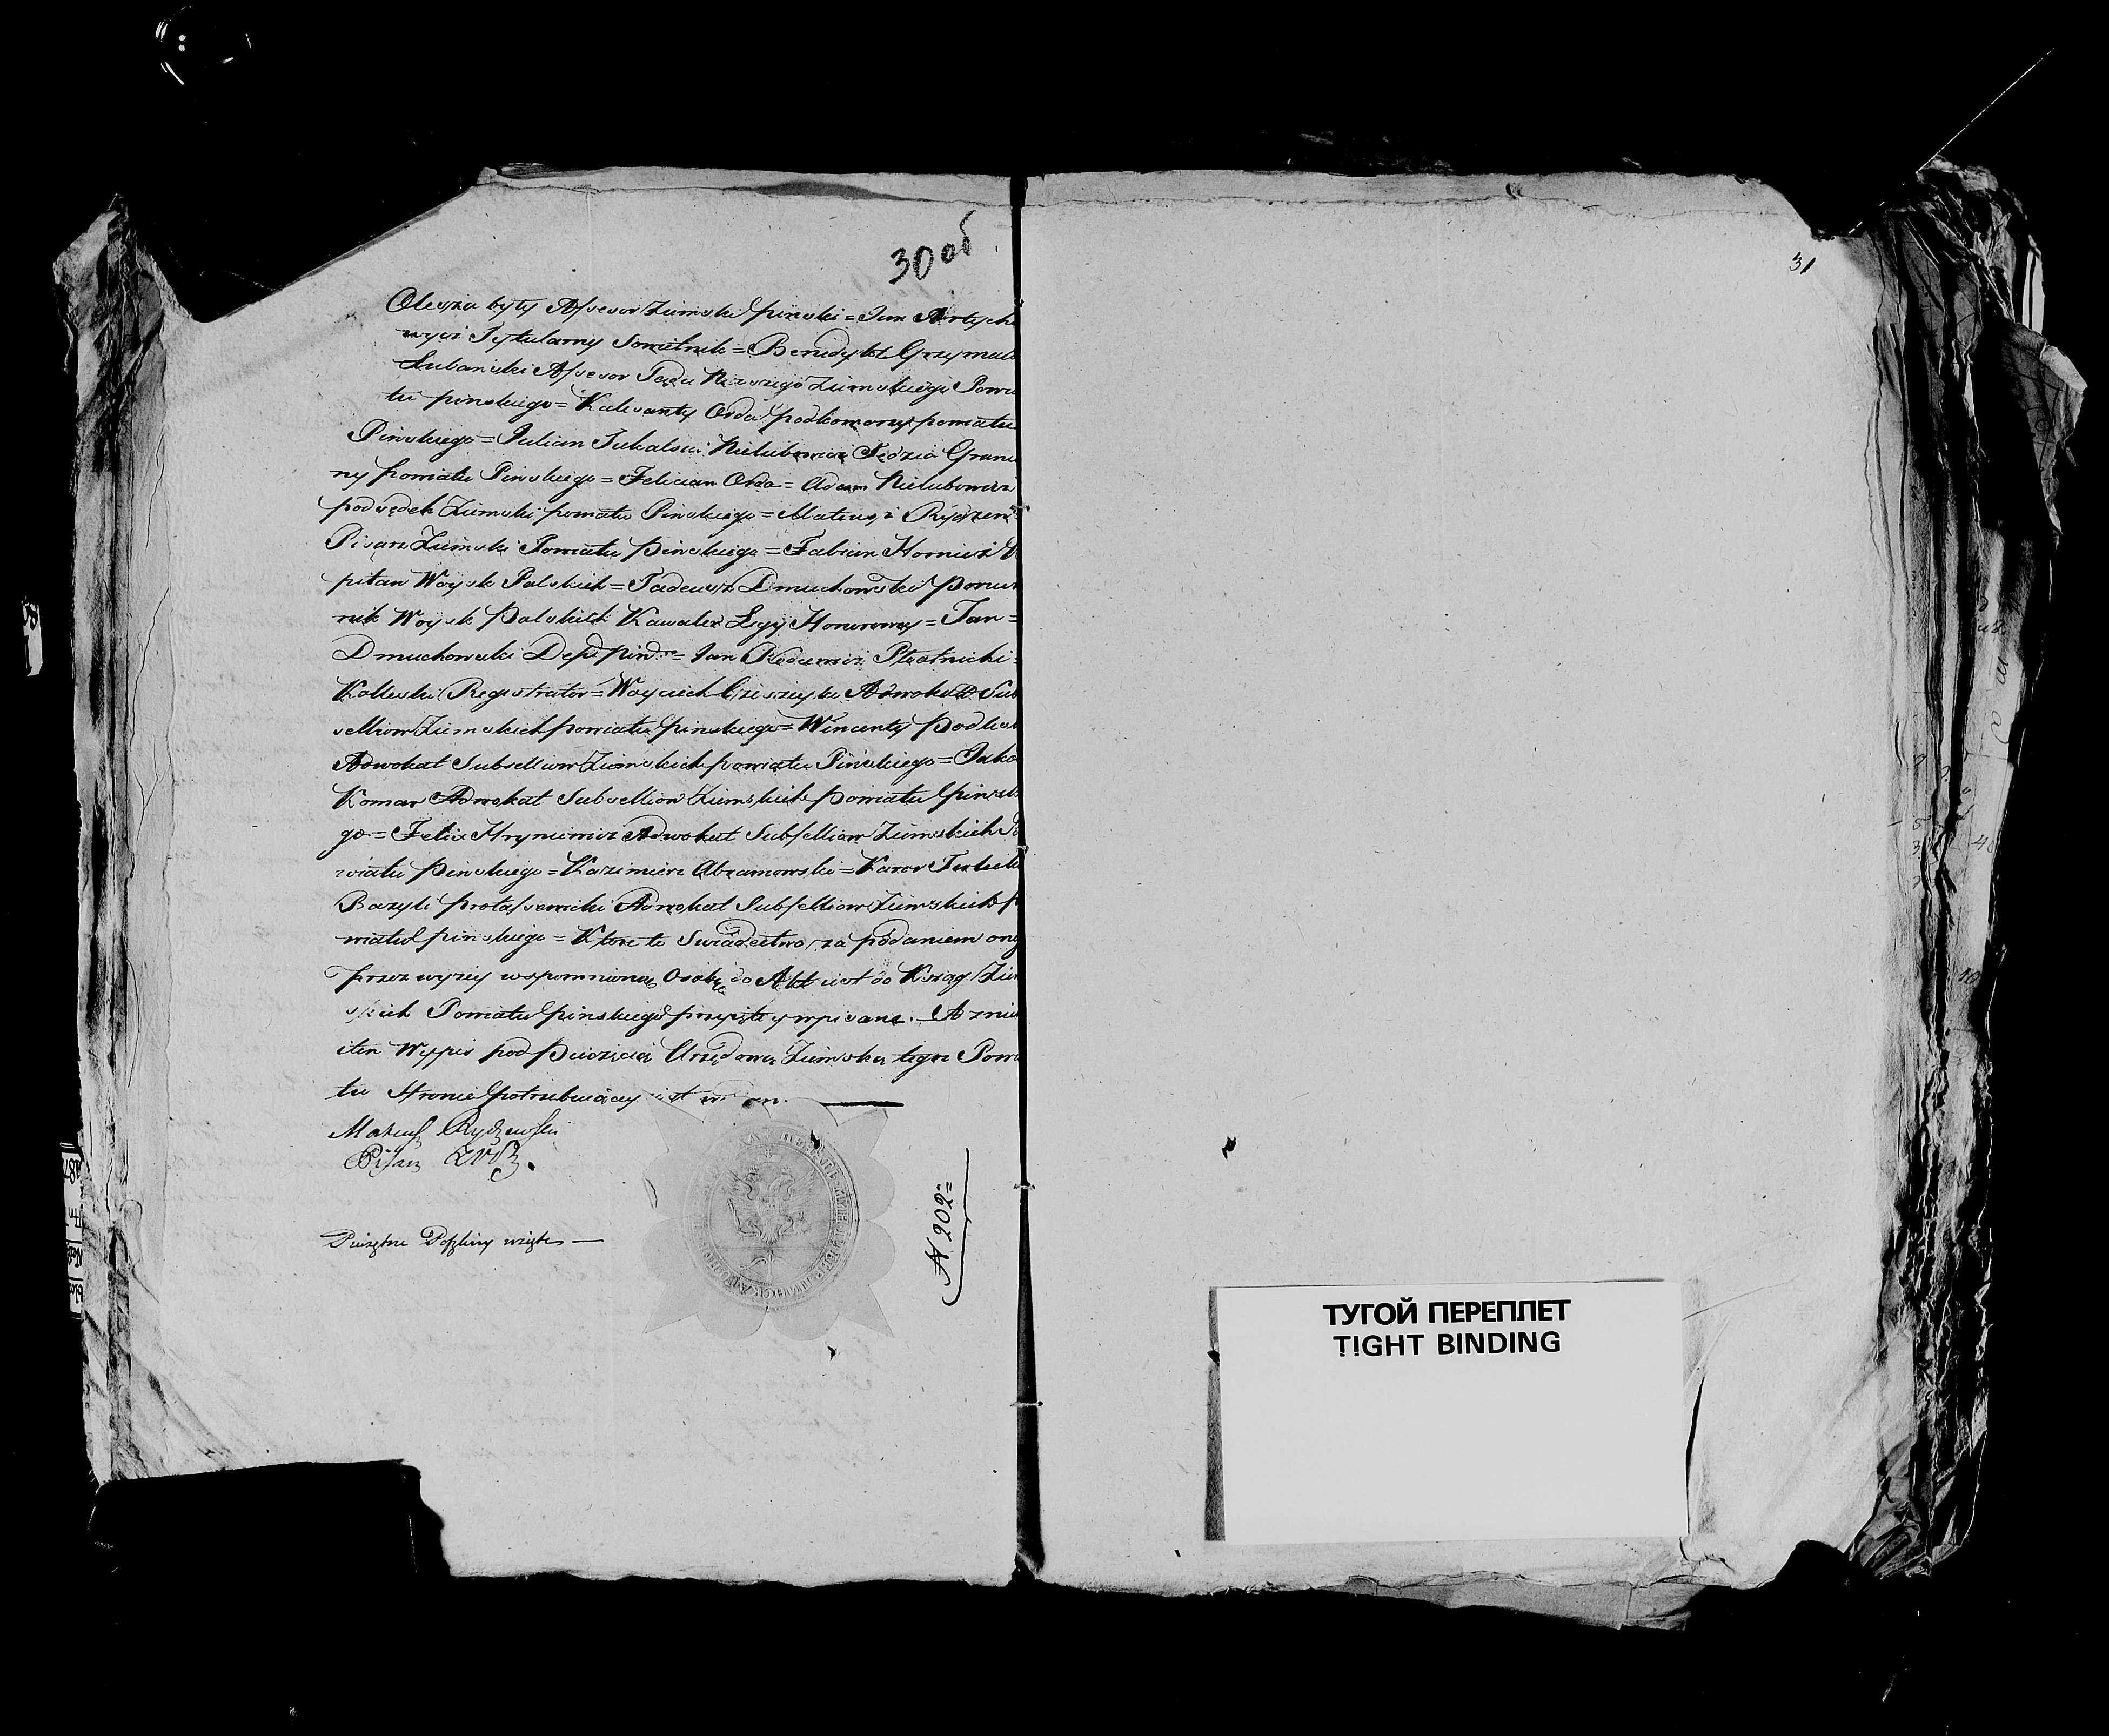 30 об
Olesza były Assesor Ziemski piński = Jan Artycho
wycz Tytularny Sowietnik = Benedykt Grzymała
Łubański Assesor Sądu Niższego Ziemskiego Powia
tu pinskiego = Kalesanty Orda podkomorzy powiatu
Pinskiego = Julian Nielubowicz Sędzia Grani
ny powiatu Pinskiego = Felician Orda = Adam Nielubowicz
podsędek Ziemski powiatu Pinskiego = Mateusz
Pisarz Ziemski Powiatu pinskiego = Fabian Hornicz
pitan Woysk Polskich = Tadeusz Dmuchowski Porucz
nik Woysk Polskich Kawaler Legy Honorowey = Jan =
Dmuchowski = Jan Płotnicki =
Kolleski Registrator = Woyciech Adwokat Sub
sellion Ziemskich powiatu pinskiego = Wincenty
Adwokat Subsellion Ziemskich powiatu Pińskiego = Jako
Komar Adwokat Subsellion Ziemskich powiatu pinski
go = Felix Hryniewicz Adwokat Subsellion Ziemskich Po
wiatu pinskiego = Kazimierz Abramowski = Karol
Bazyli Protassewicki Adwokat Subsellion Ziemskich p
wiatu pinskiego = Ktore to Swiadectwo za podaniem one
przez wyżey wspomnioną Osobę do Akt jest do Xsiąg Ziem
skich Powiatu pinskiego przyięte y wpisane. A z nich
iten Wypis pod Pieczęcią Urzędową Ziemską tegoż Powia
tu Stronie potrzebuiącey iest
Mateusz Rydzewski
Pisarz
Poszliny wzięte —
N 202 =
31
ТУГОЙ ПЕРЕПЛЕТ
TIGHT BINDING